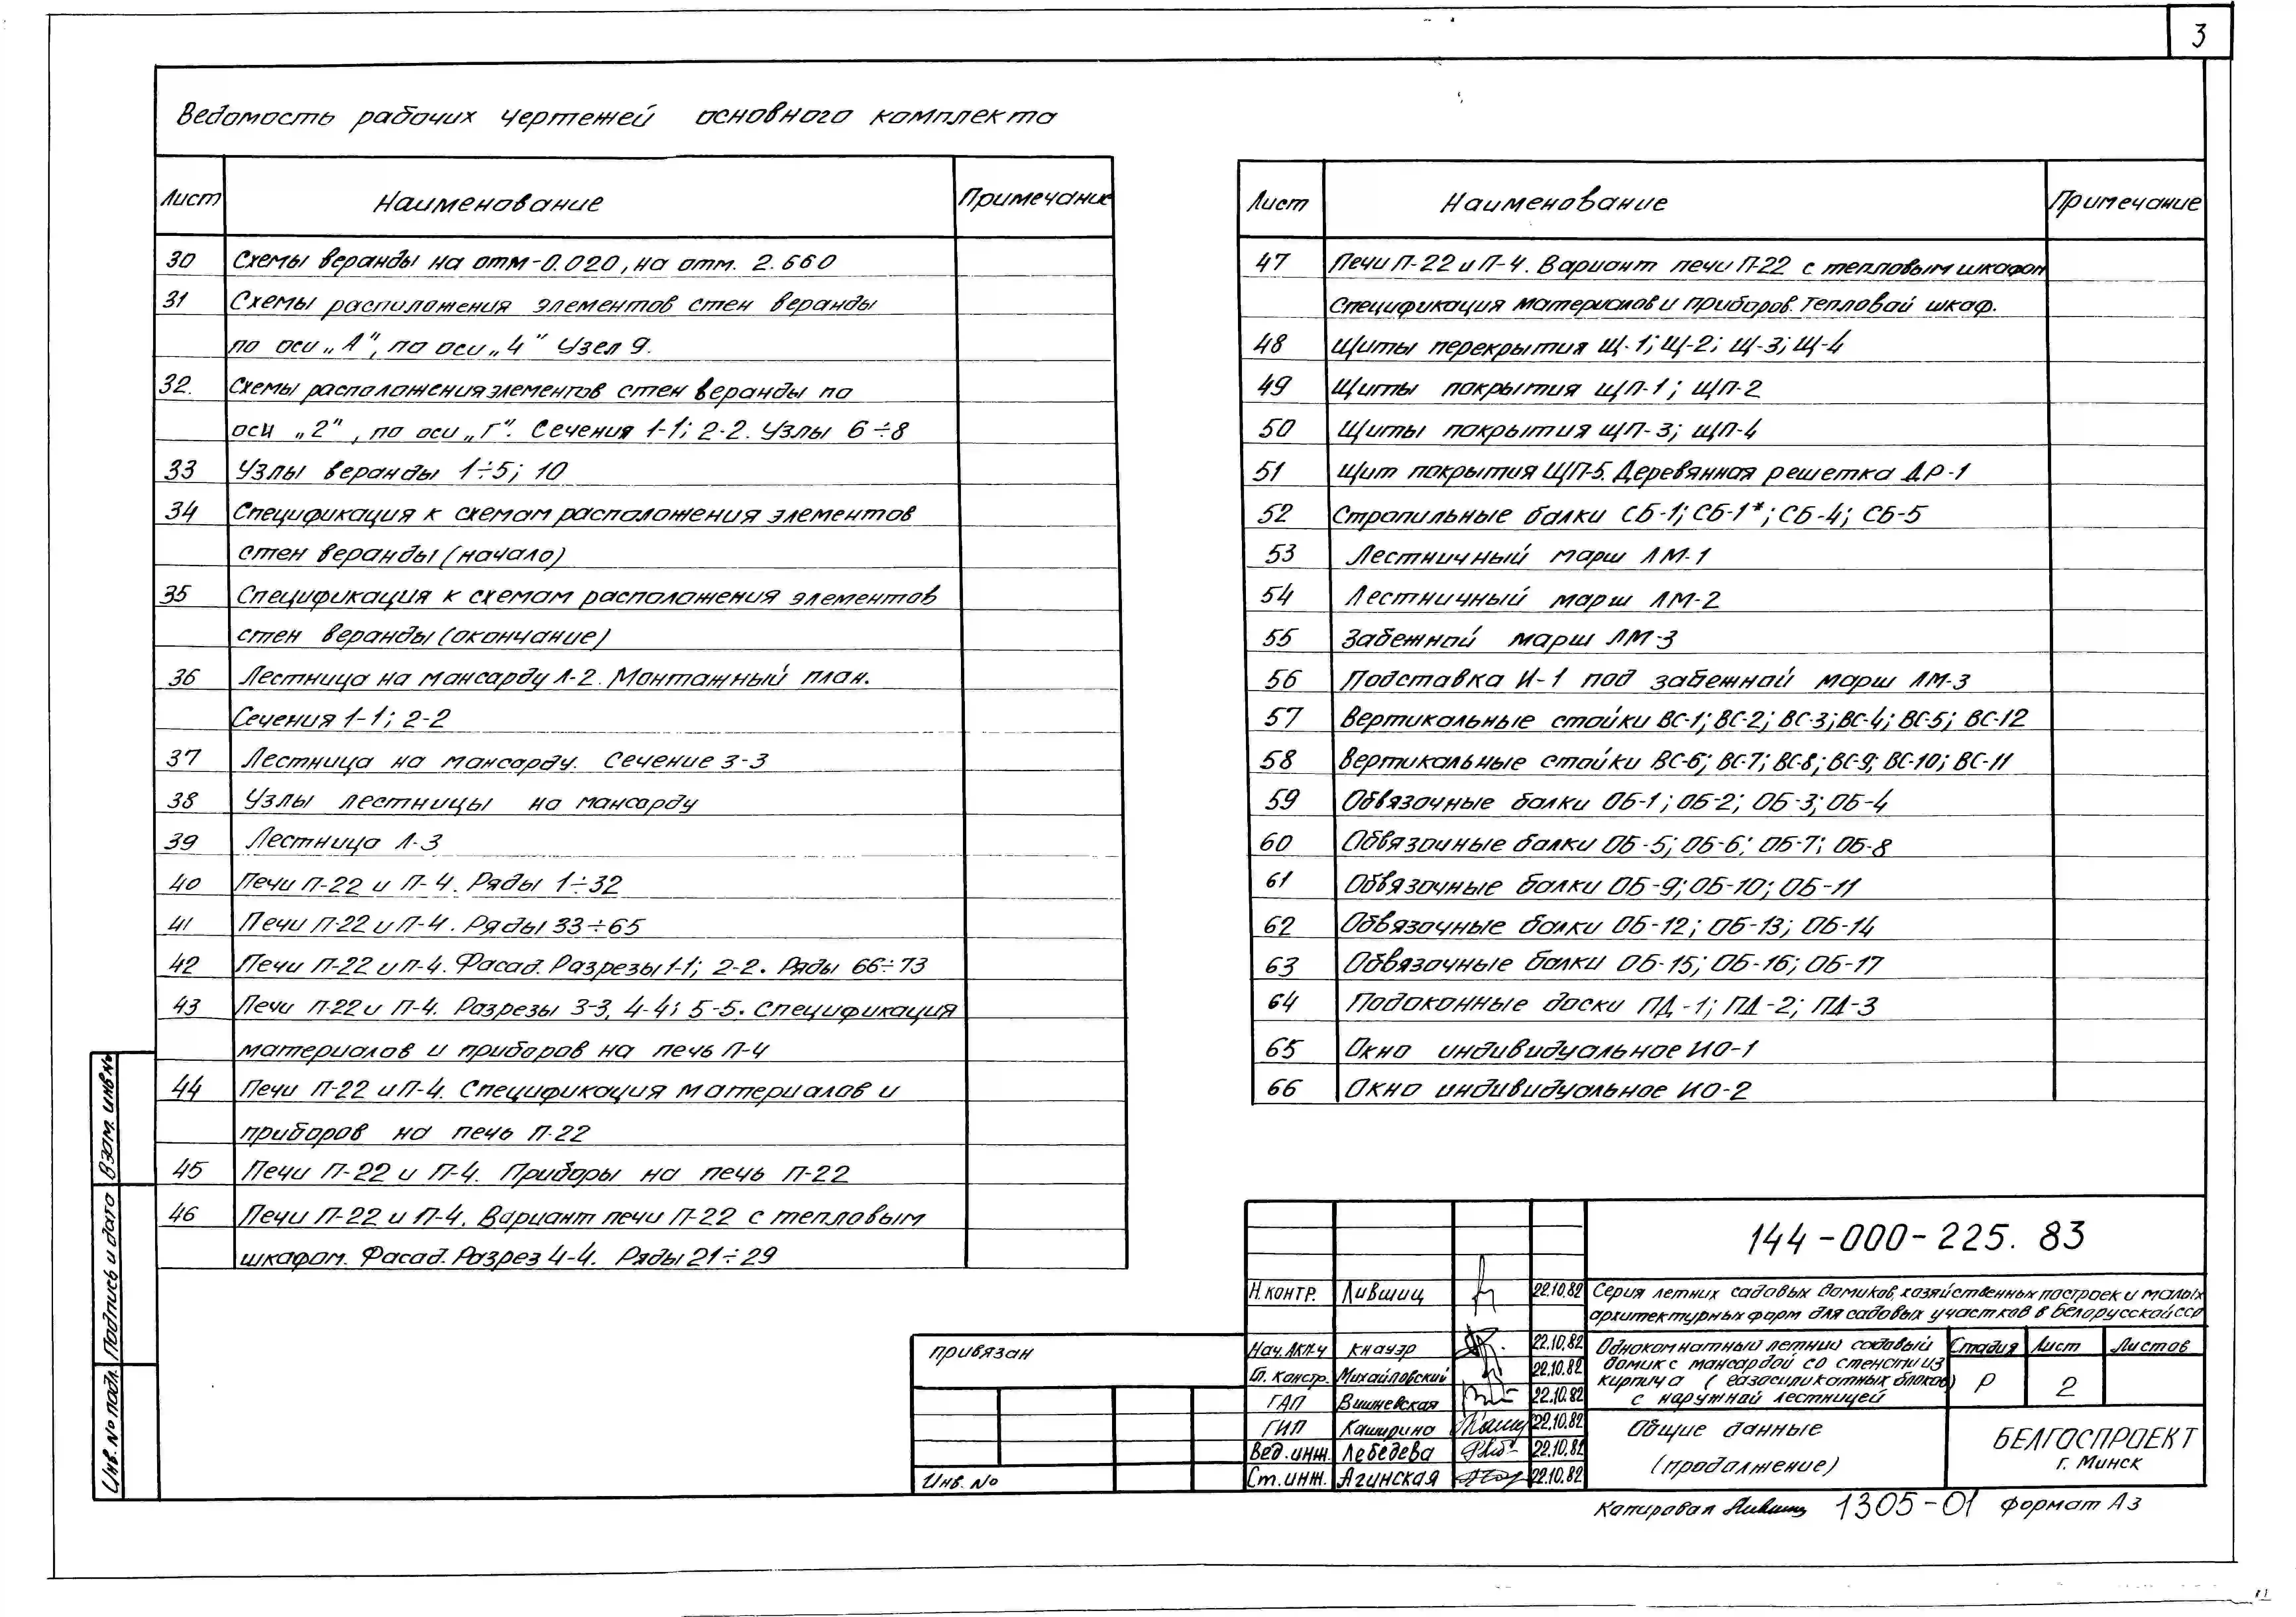 3
Ведомость рабочих чертежей основного комплекта
Лист Наименование Примечание
30 Схемы веранды на отм-0.020, на отм. 2.660
31 Схемы расположения элементов стен веранды
по оси „А", по оси „4" Узел 9.
32. Схемы расположения элементов стен веранды по
оси „2", по оси „Г". Сечения 1-1; 2-2. Узлы 6÷8
33 Узлы веранды 1÷5; 10
34 Спецификация к схемам расположения элементов
стен веранды (начало)
35 Спецификация к схемам расположения элементов
стен веранды (окончание)
36 Лестница на мансарду Л-2. Монтажный план.
Сечения 1-1; 2-2
37 Лестница на мансарду. Сечение 3-3
38 Узлы лестницы на мансарду
39 Лестница Л-3
40 Печи П-22 и П-4. Ряды 1÷32
41 Печи П-22 и П-4. Ряды 33÷65
42 Печи П-22 и П-4. Фасад. Разрезы 1-1; 2-2. Ряды 66÷73
43 Печи П-22 и П-4. Разрезы 3-3, 4-4; 5-5. Спецификация
материалов и приборов на печь П-4
44 Печи П-22 и П-4. Спецификация материалов и
приборов на печь П-22
45 Печи П-22 и П-4. Приборы на печь П-22
46 Печи П-22 и П-4. Вариант печи П-22 с тепловым
шкафом. Фасад. Разрез 4-4. Ряды 21÷29
Лист Наименование Примечание
47 Печи П-22 и П-4. Вариант печи П-22 с тепловым шкафом
Спецификация материалов и приборов. Тепловой шкаф.
48 Щиты перекрытия Щ-1; Щ-2; Щ-3; Щ-4
49 Щиты покрытия ЩП-1; ЩП-2
50 Щиты покрытия ЩП-3; ЩП-4
51 Щит покрытия ЩП-5. Деревянная решетка ДР-1
52 Стропильные балки СБ-1; СБ-1*; СБ-4; СБ-5
53 Лестничный марш ЛМ-1
54 Лестничный марш ЛМ-2
55 Забежной марш ЛМ-3
56 Подставка И-1 под забежной марш ЛМ-3
57 Вертикальные стойки ВС-1; ВС-2; ВС-3; ВС-4; ВС-5; ВС-12
58 Вертикальные стойки ВС-6; ВС-7; ВС-8; ВС-9; ВС-10; ВС-11
59 Обвязочные балки ОБ-1; ОБ-2; ОБ-3; ОБ-4
60 Обвязочные балки ОБ-5; ОБ-6; ОБ-7; ОБ-8
61 Обвязочные балки ОБ-9; ОБ-10; ОБ-11
62 Обвязочные балки ОБ-12; ОБ-13; ОБ-14
63 Обвязочные балки ОБ-15; ОБ-16; ОБ-17
64 Подоконные доски ПД-1; ПД-2; ПД-3
65 Окно индивидуальное ИО-1
66 Окно индивидуальное ИО-2
Взам. инв №
Подпись и дата
Инв. № подл.
привязан
Инв. №
144-000-225. 83
Н.контр. Лившиц 22.10.82
Серия летних садовых домиков, хозяйственных построек и малых
архитектурных форм для садовых участков в Белорусской ССР
Нач. АКМ-4 Кнауэр 22.10.82
Гл. констр. Михайловский 22.10.82
ГАП Вишневская 22.10.82
ГИП Каширина 22.10.82
Вед. инж. Лебедева 22.10.82
Ст. инж. Агинская 22.10.82
Однокомнатный летний садовый
домик с мансардой со стенами из
кирпича (газосиликатных блоков)
с наружной лестницей
Стадия Лист Листов
Р 2
Общие данные
(продолжение)
БЕЛГОСПРОЕКТ
г. Минск
Копировал Лившиц 1305-01 формат А3